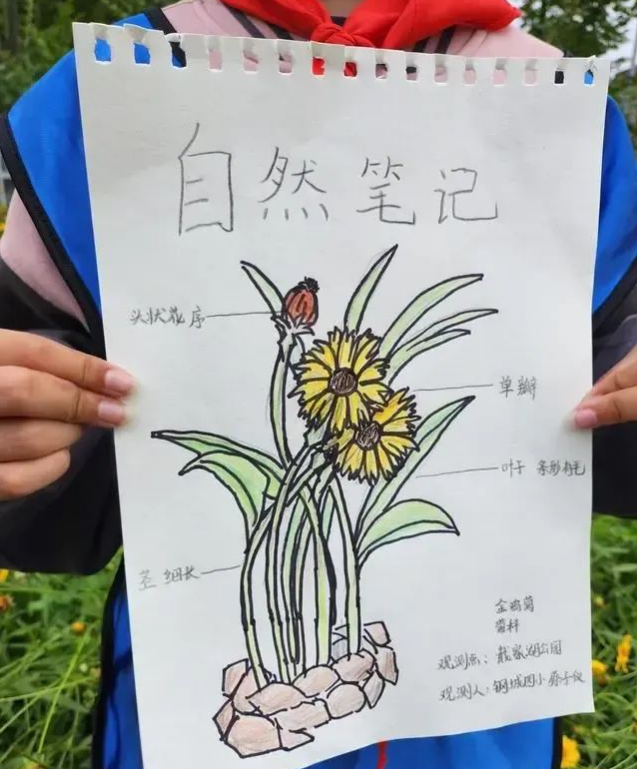 自然笔记
头状花序
单瓣
叶子 条形有毛
茎 细长
金鸡菊
菊科
观测点：戴家湖公园
观测人：钢城四小